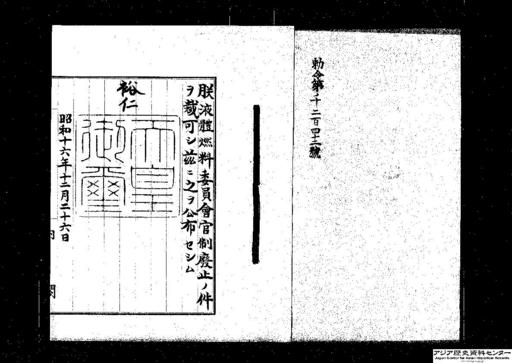 勅令第千二百四十三號
朕液體燃料委員會官制廢止ノ件
ヲ裁可シ茲ニ之ヲ公布セシム
裕仁
天皇御璽
昭和十六年十二月二十六日
内閣
アジア歴史資料センター
Japan Center for Asian Historical Records